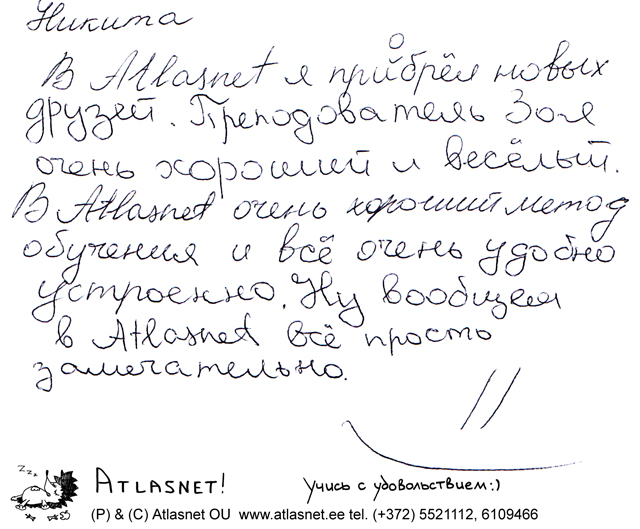 Никита
В Atlasnet я приобрёл новых
друзей. Преподователь Зоя
очень хороший и весёлый.
В Atlasnet очень хороший метод
обучения и всё очень удобно
устроенно. Ну вообщем
в Atlasnet всё просто
замечательно.
zzz...
ATLASNET!
Учись с удовольствием:)
(P) & (C) Atlasnet OU www.atlasnet.ee tel. (+372) 5521112, 6109466